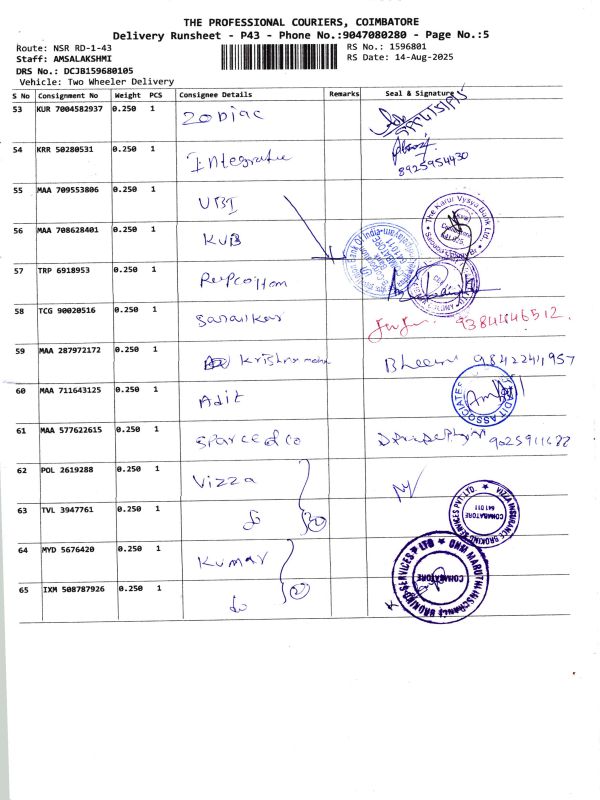 THE PROFESSIONAL COURIERS, COIMBATORE
Delivery Runsheet - P43 - Phone No.:9047080280 - Page No.:5
Route: NSR RD-1-43 RS No.: 1596801
Staff: AMSALAKSHMI RS Date: 14-Aug-2025
DRS No.: DCJB159680105
Vehicle: Two Wheeler Delivery
S No Consignment No Weight PCS Consignee Details Remarks Seal & Signature
53 KUR 7004582937 0.250 1 Zodiac
54 KRR 50280531 0.250 1 Integrative
8925954430
55 MAA 709553806 0.250 1 UBI
56 MAA 708628401 0.250 1 KVB
The Karur Vysya Bank Ltd.
57 TRP 6918953 0.250 1 Repco Hom
58 TCG 90020516 0.250 1 Saraikar 9384446512
59 MAA 287972172 0.250 1 Krishna
9842241957
60 MAA 711643125 0.250 1 Adit
ADIT ASSOCIATES
61 MAA 577622615 0.250 1 Sparcedco
62 POL 2619288 0.250 1 Vizza
63 TVL 3947761 0.250 1 do
VIZZA INSURANCE BROKING SERVICES PVT. LTD.
COIMBATORE
641 011
64 MYD 5676420 0.250 1 Kumar
65 IXM 508787926 0.250 1 do
OHM MARUTHI INSURANCE BROKING SERVICES P LTD
COIMBATORE